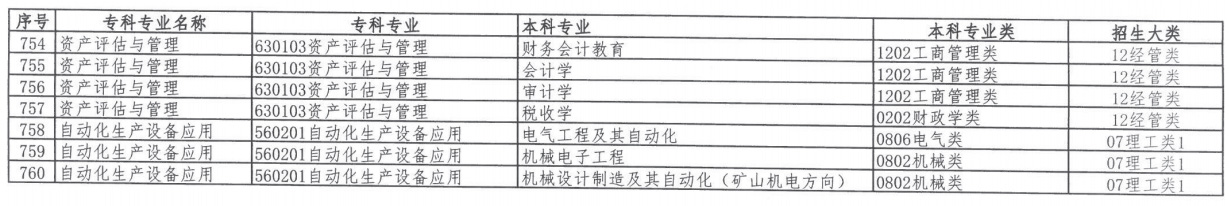 序号 专科专业名称 专科专业 本科专业 本科专业类 招生大类
754 资产评估与管理 630103资产评估与管理 财务会计教育 1202工商管理类 12经管类
755 资产评估与管理 630103资产评估与管理 会计学 1202工商管理类 12经管类
756 资产评估与管理 630103资产评估与管理 审计学 1202工商管理类 12经管类
757 资产评估与管理 630103资产评估与管理 税收学 0202财政学类 12经管类
758 自动化生产设备应用 560201自动化生产设备应用 电气工程及其自动化 0806电气类 07理工类1
759 自动化生产设备应用 560201自动化生产设备应用 机械电子工程 0802机械类 07理工类1
760 自动化生产设备应用 560201自动化生产设备应用 机械设计制造及其自动化（矿山机电方向） 0802机械类 07理工类1